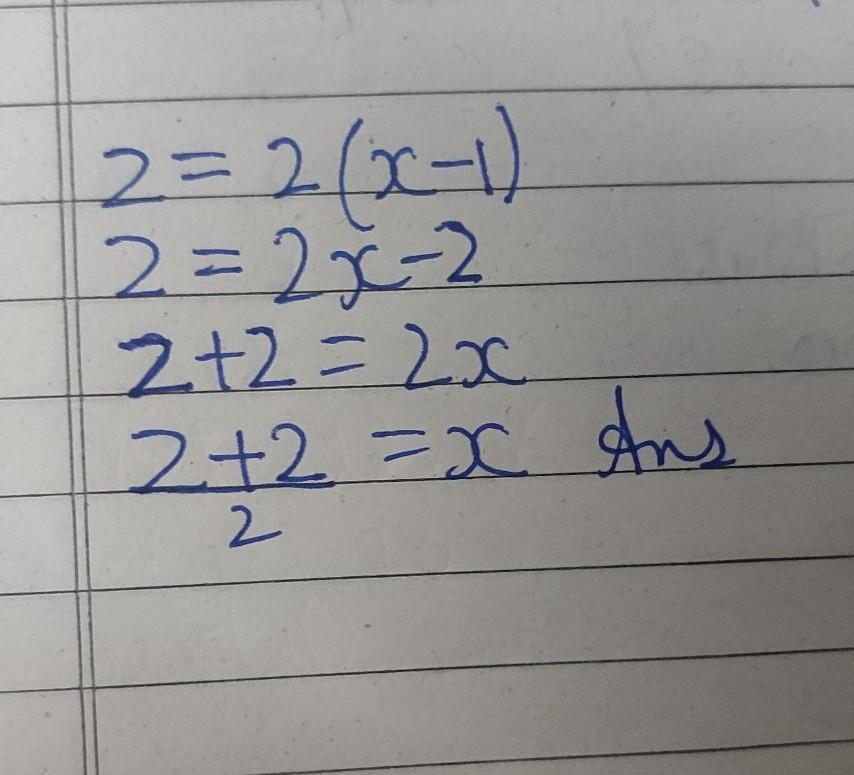 2 = 2(x-1)
2 = 2x-2
2+2 = 2x
2+2 = x Ans
2